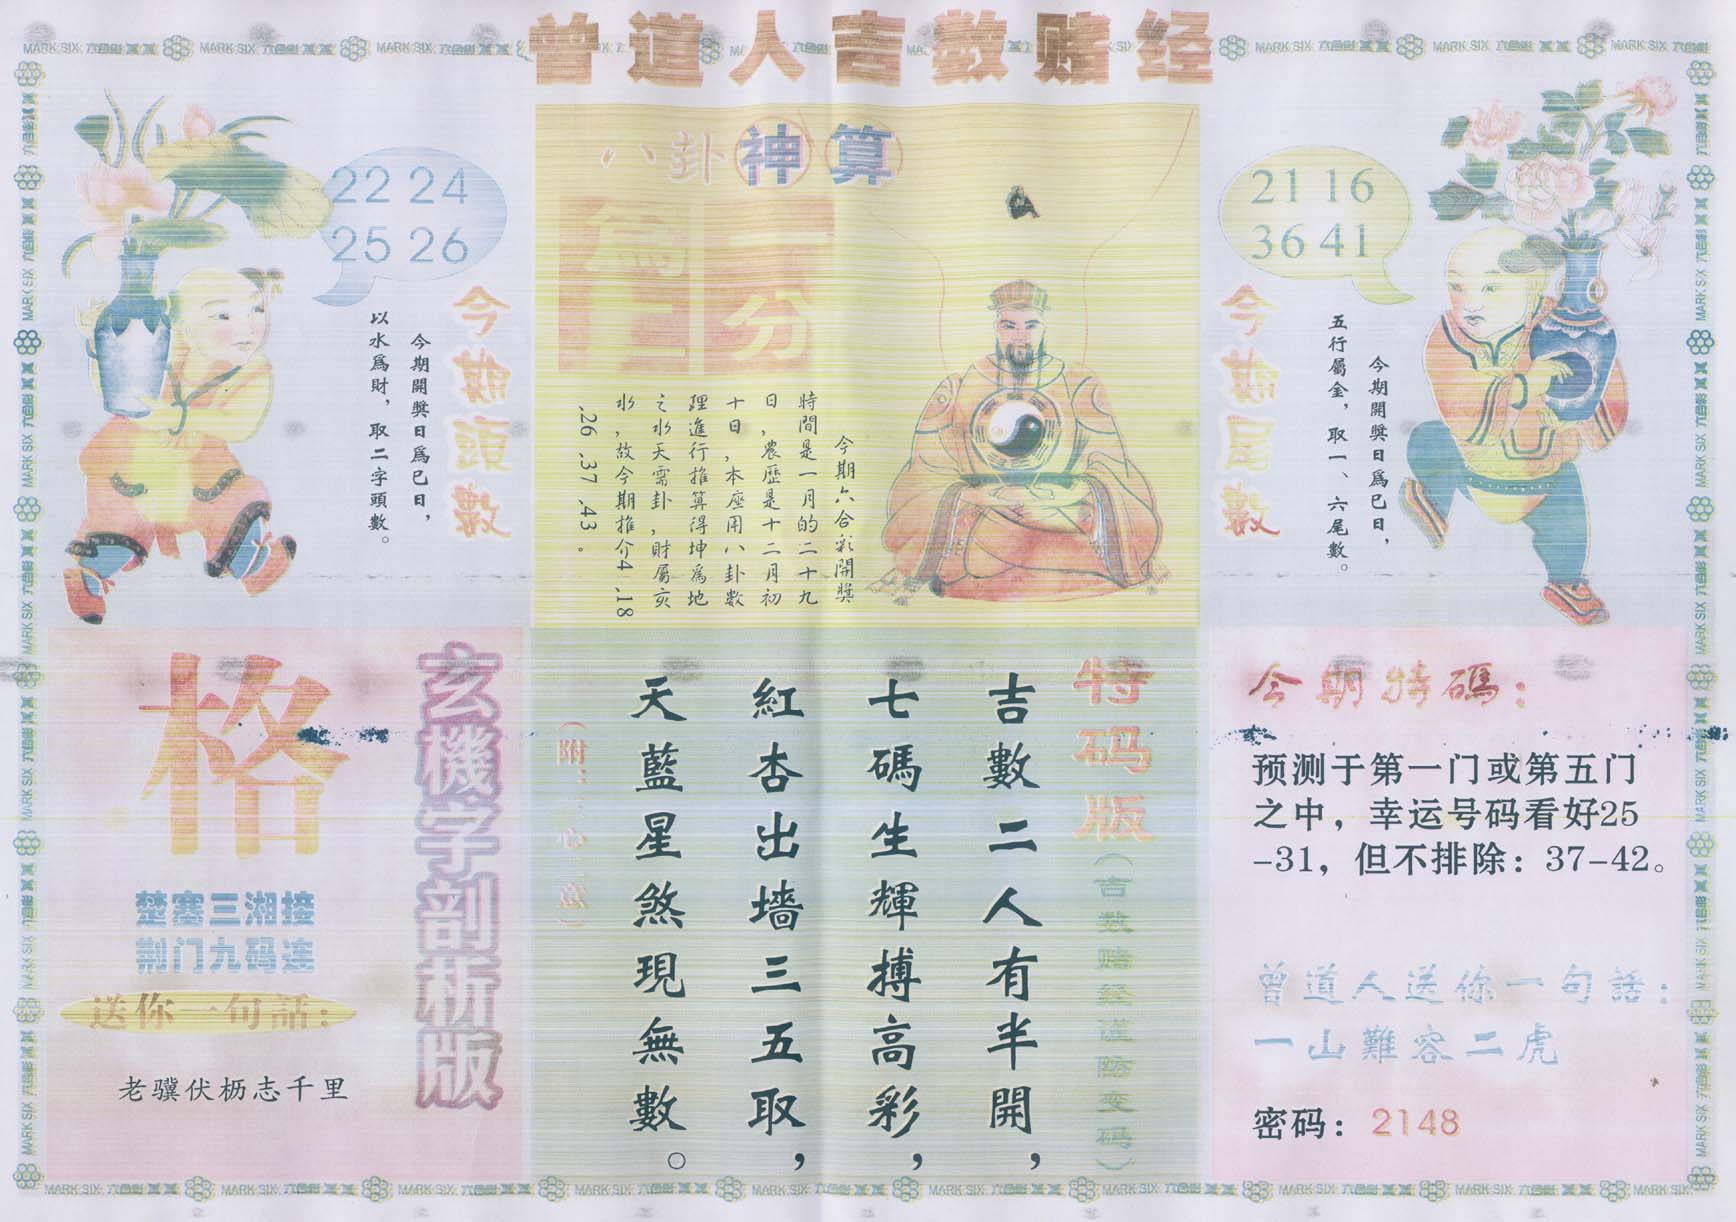 曾道人吉数赌经
22 24
25 26
今期頭數
今期開獎日爲巳日，
以水爲財，取二字頭數。
八卦神算
二分
爲上
今期六合彩開獎
時間是一月的二十九
日，農歷是十二月初
十日，本座用八卦數
理進行推算得坤爲地
之水天需卦，財屬亥
水，故今期推介4 .18
.26 .37 .43 。
21 16
36 41
今期尾數
今期開獎日爲巳日，
五行屬金，取一、六尾數。
玄機字剖析版
格
楚塞三湘接
荆门九码连
送你一句話：
老骥伏枥志千里
特码版
（吉数赌经谨防变码）
吉數二人有半開，
七碼生輝搏高彩，
紅杏出墻三五取，
天藍星煞現無數。
今期特碼：
预测于第一门或第五门
之中，幸运号码看好25
-31，但不排除：37-42。
曾道人送你一句話：
一山難容二虎
密码：2148
MARK SIX 六合彩